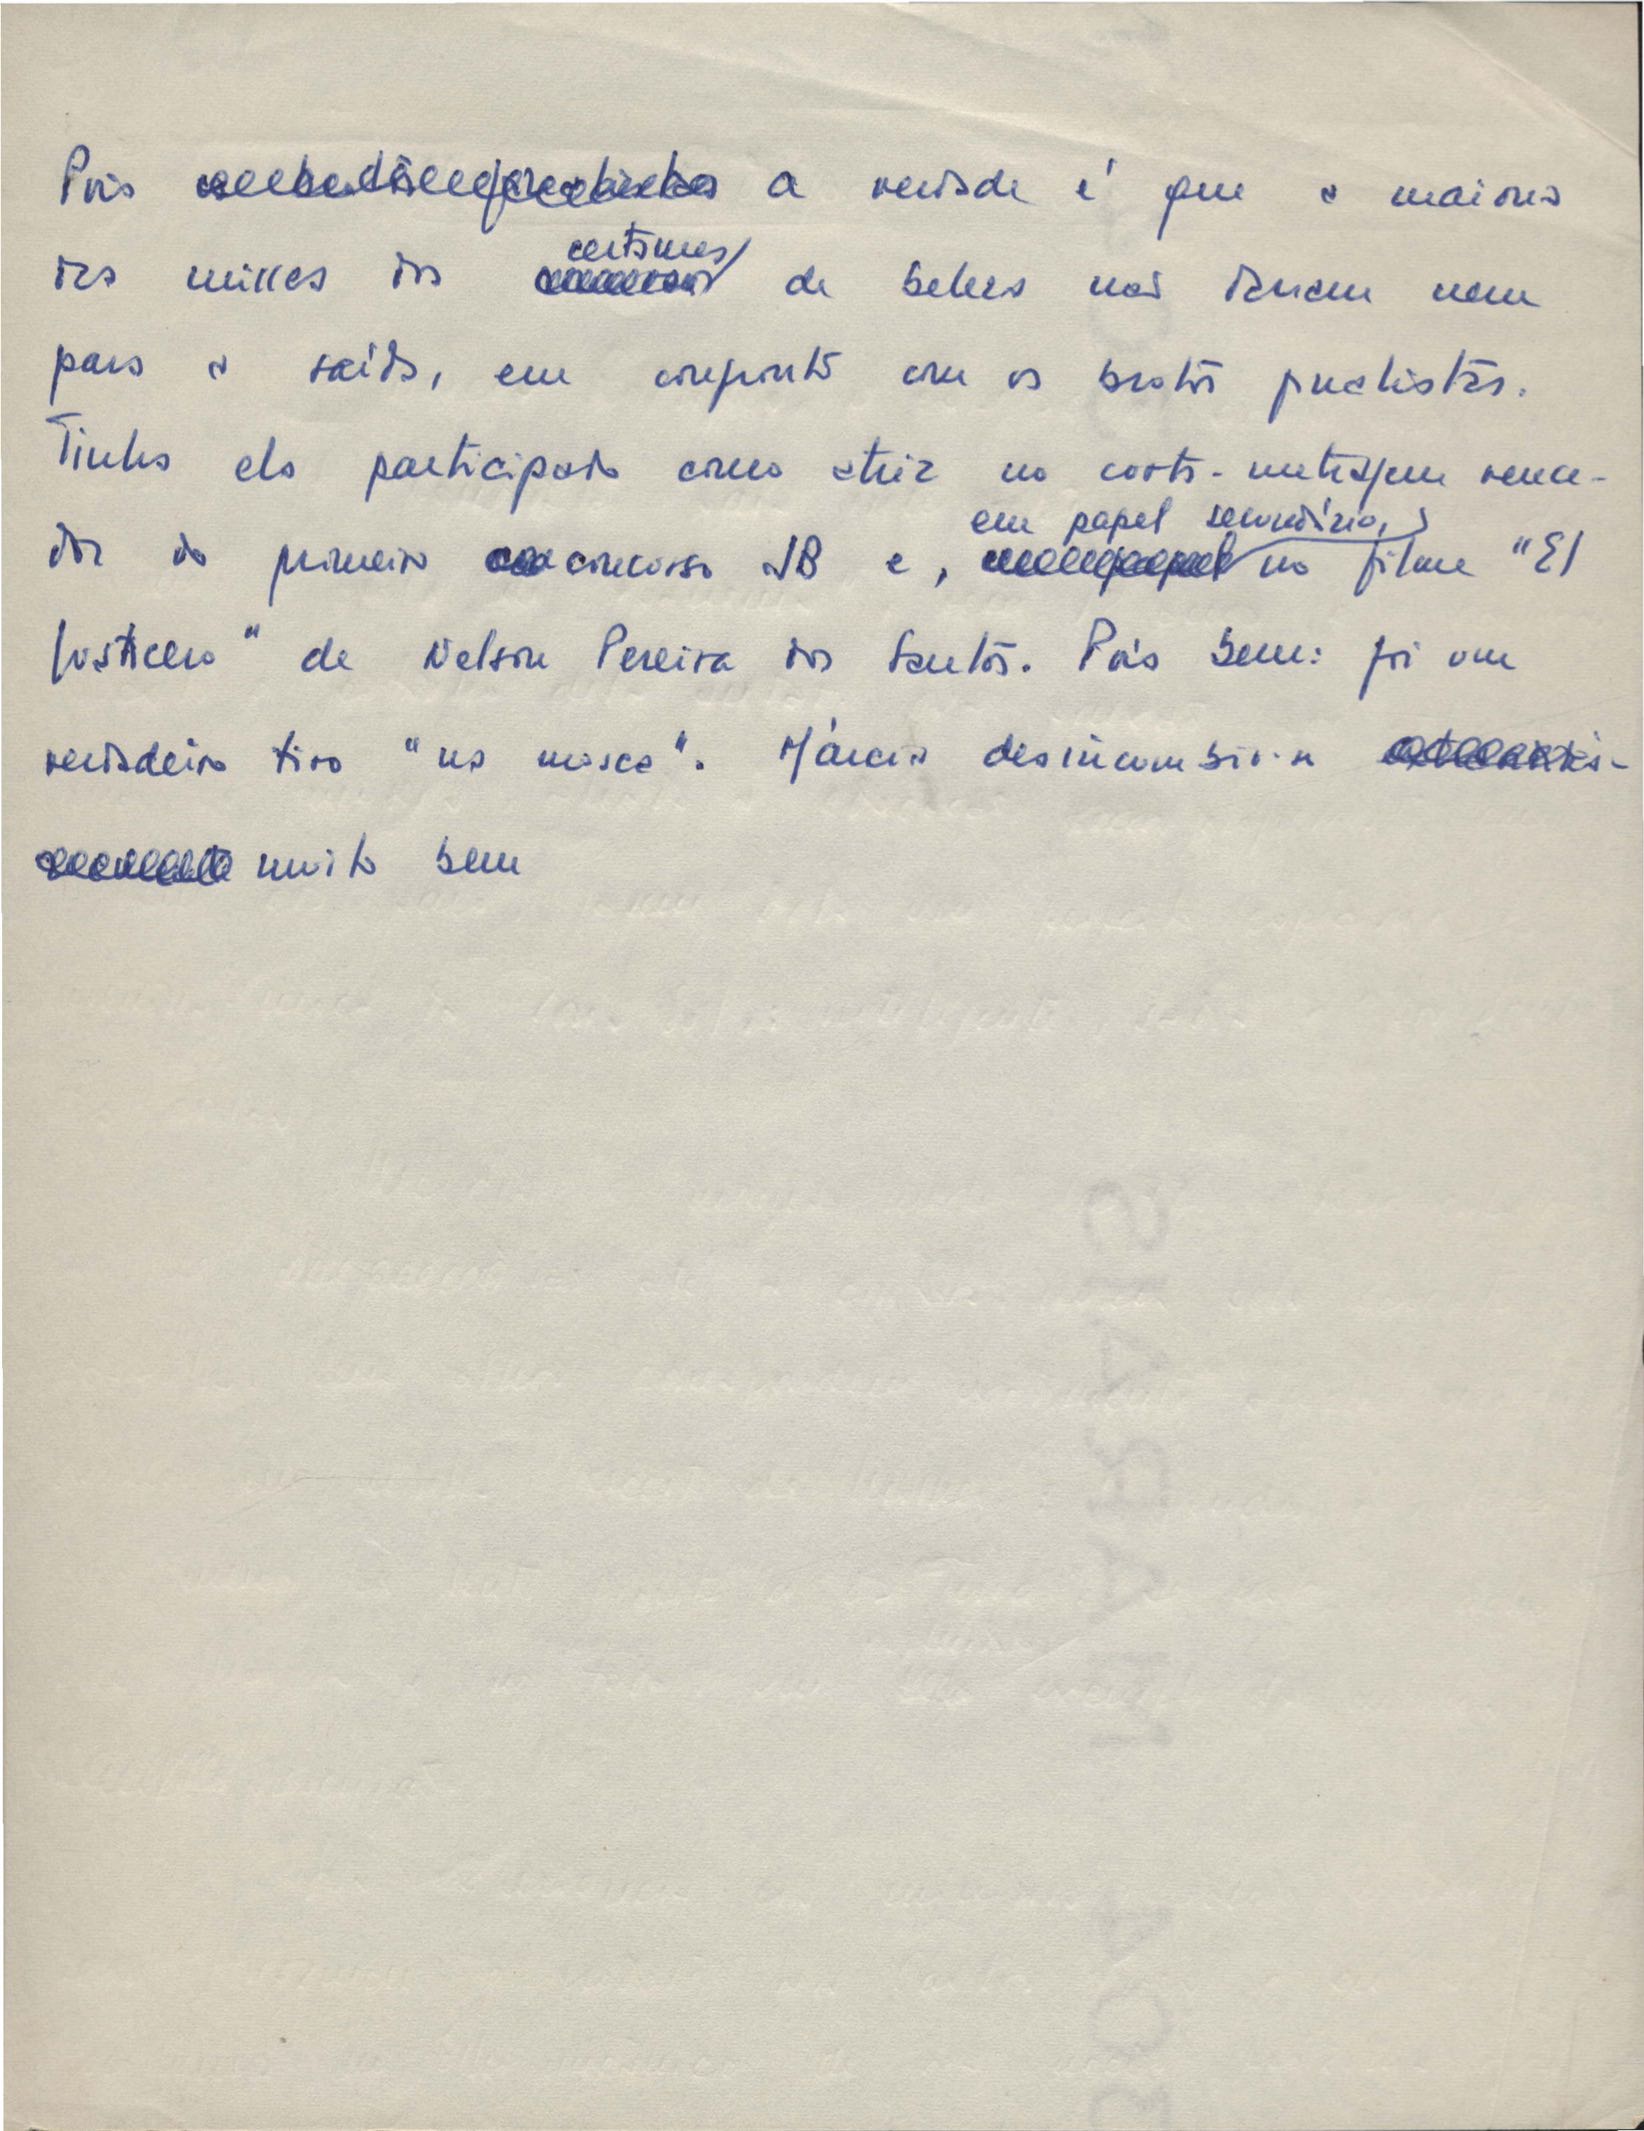 Pois a verdade é que a maioria
das misses dos certames de beleza não dariam nem
para a saída, em confronto com os brotos paulistas.
Tinha ela participado como atriz no curta-metragem vence-
dor do primeiro concurso JB e, em papel secundário, no filme "El
Justicero" de Nelson Pereira dos Santos. Pois bem: foi um
verdadeiro tiro "na mosca". Márcia desincumbiu-se
muito bem